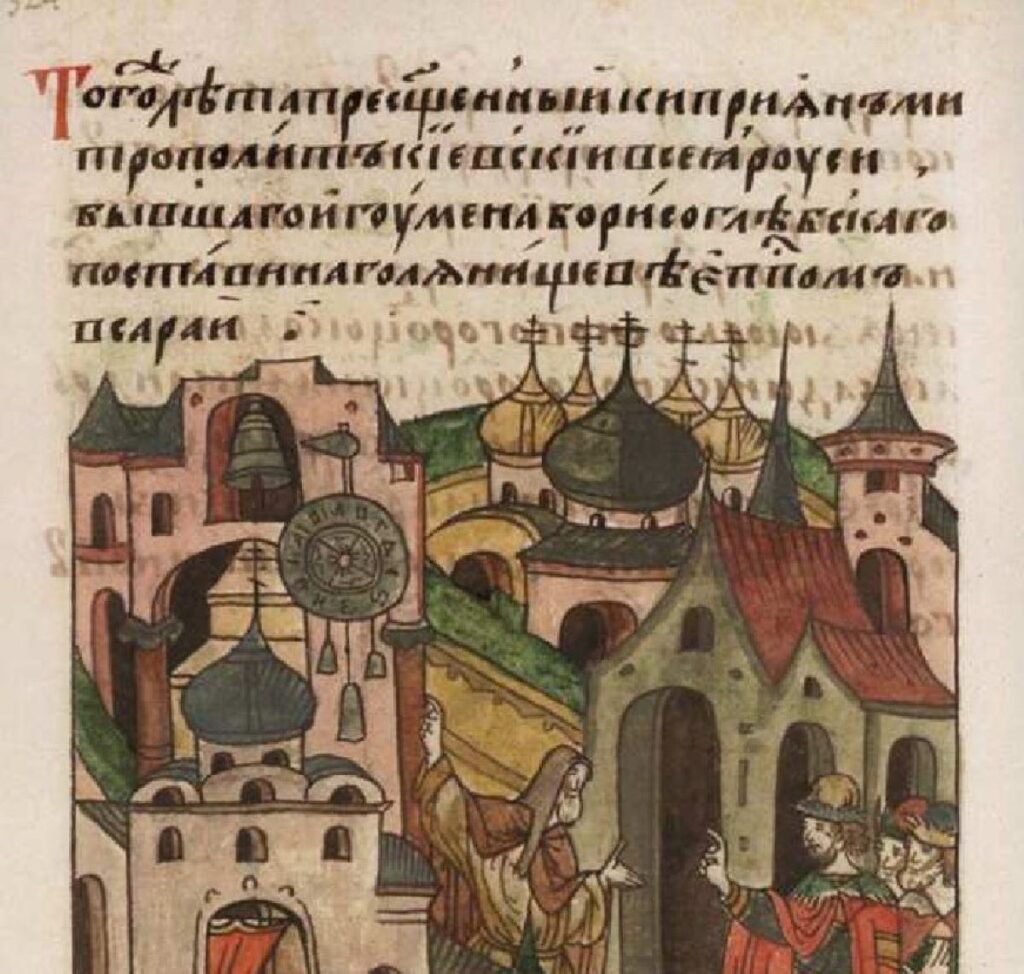 Того лѣта пресщ҃енныи киприѧнъ ми
трополитъ кїевскїи и всеѧ роуси ,
бывшаго игоумена борисоглѣбскаго
постави на голѧнищевѣ еп҃помъ
в сараи :